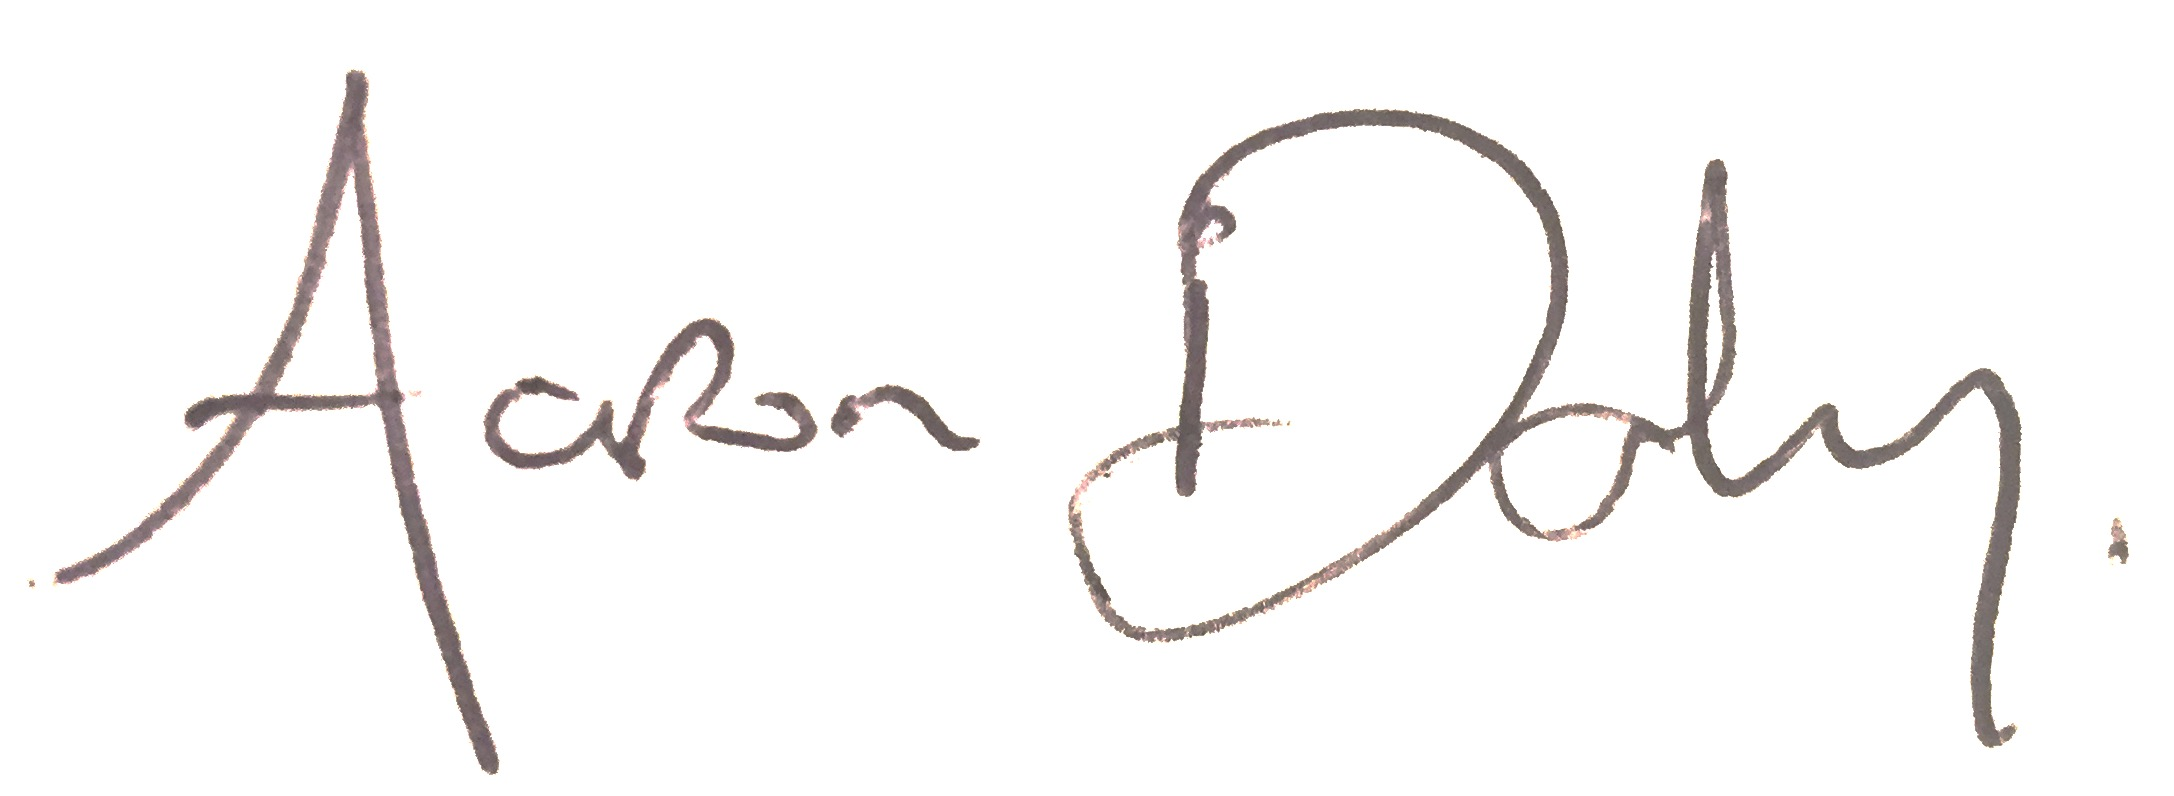 Aaron Doly.